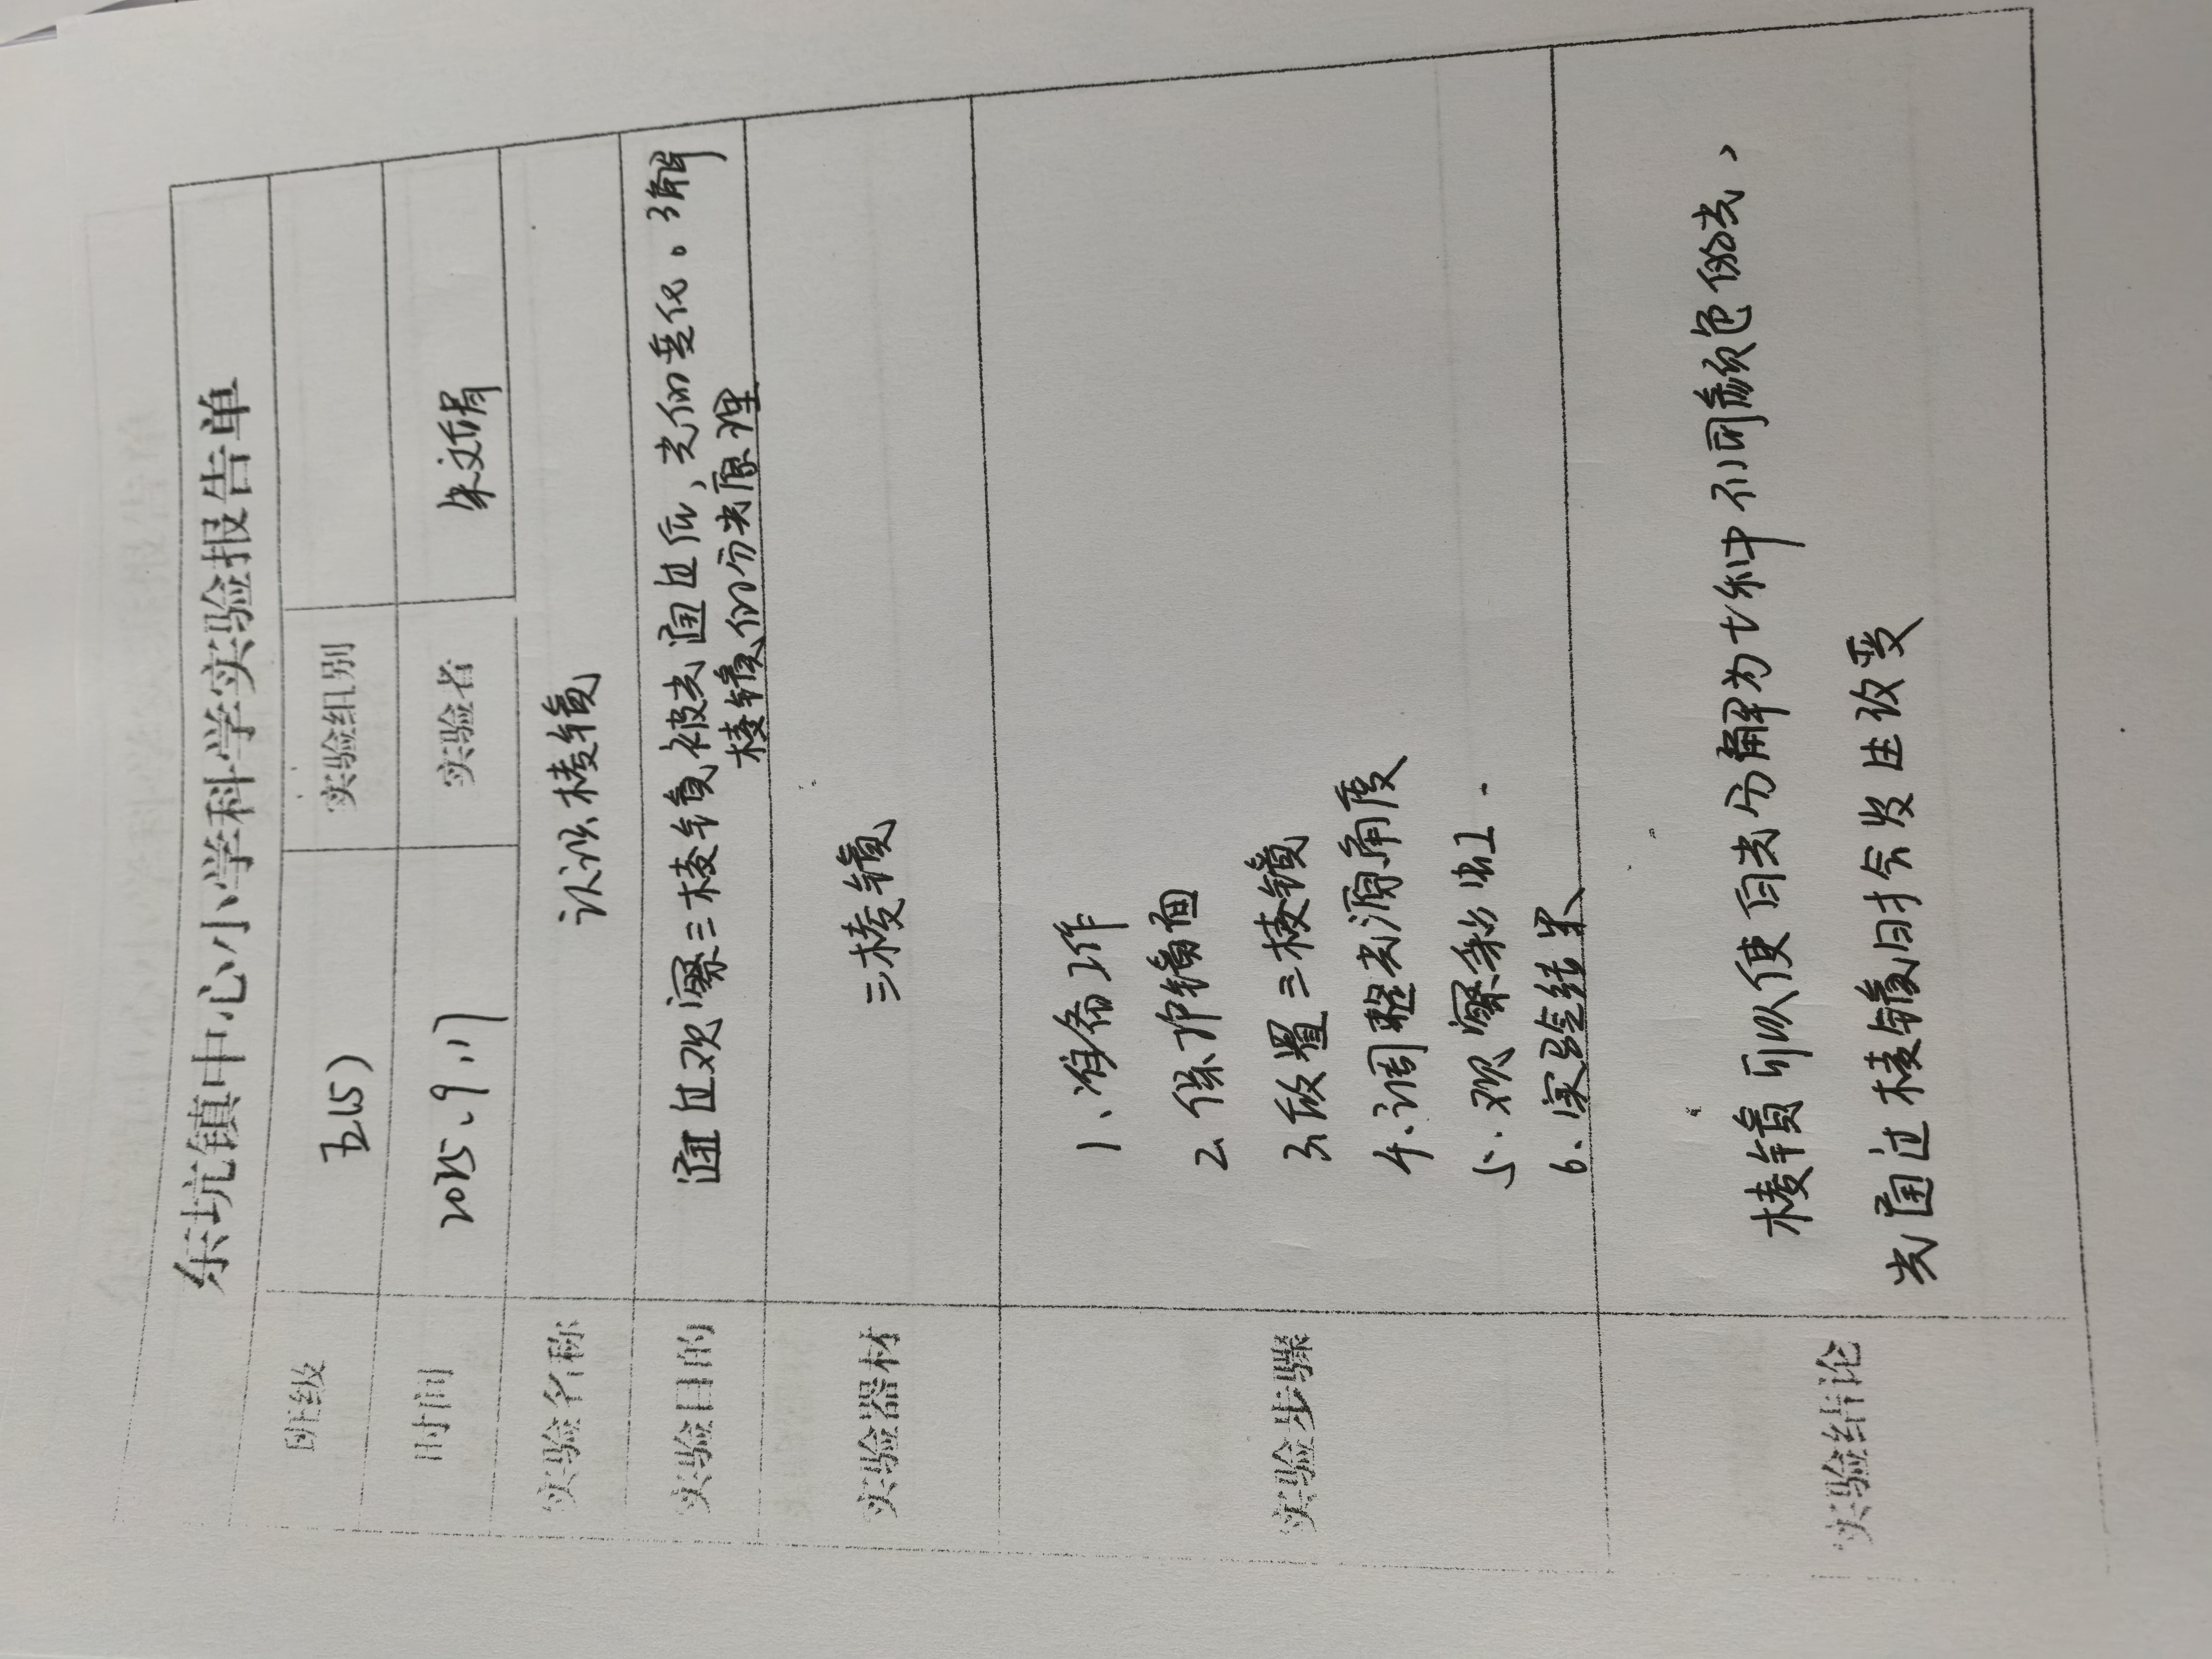 东坑镇中心小学科学实验报告单
班级 五(5) 实验组别
时间 2025.9.11 实验者 朱文娟
实验名称 认识棱镜
实验目的 通过观察三棱镜被光通过后,光的变化。了解
棱镜的分光原理
实验器材 三棱镜
实验步骤
1、准备工作
2、保护镜面
3、放置三棱镜
4、调整光源角度
5、观察彩虹.
6、实验结果
实验结论
棱镜可以使白光分解为七种不同颜色的光,
光通过棱镜时会发生改变